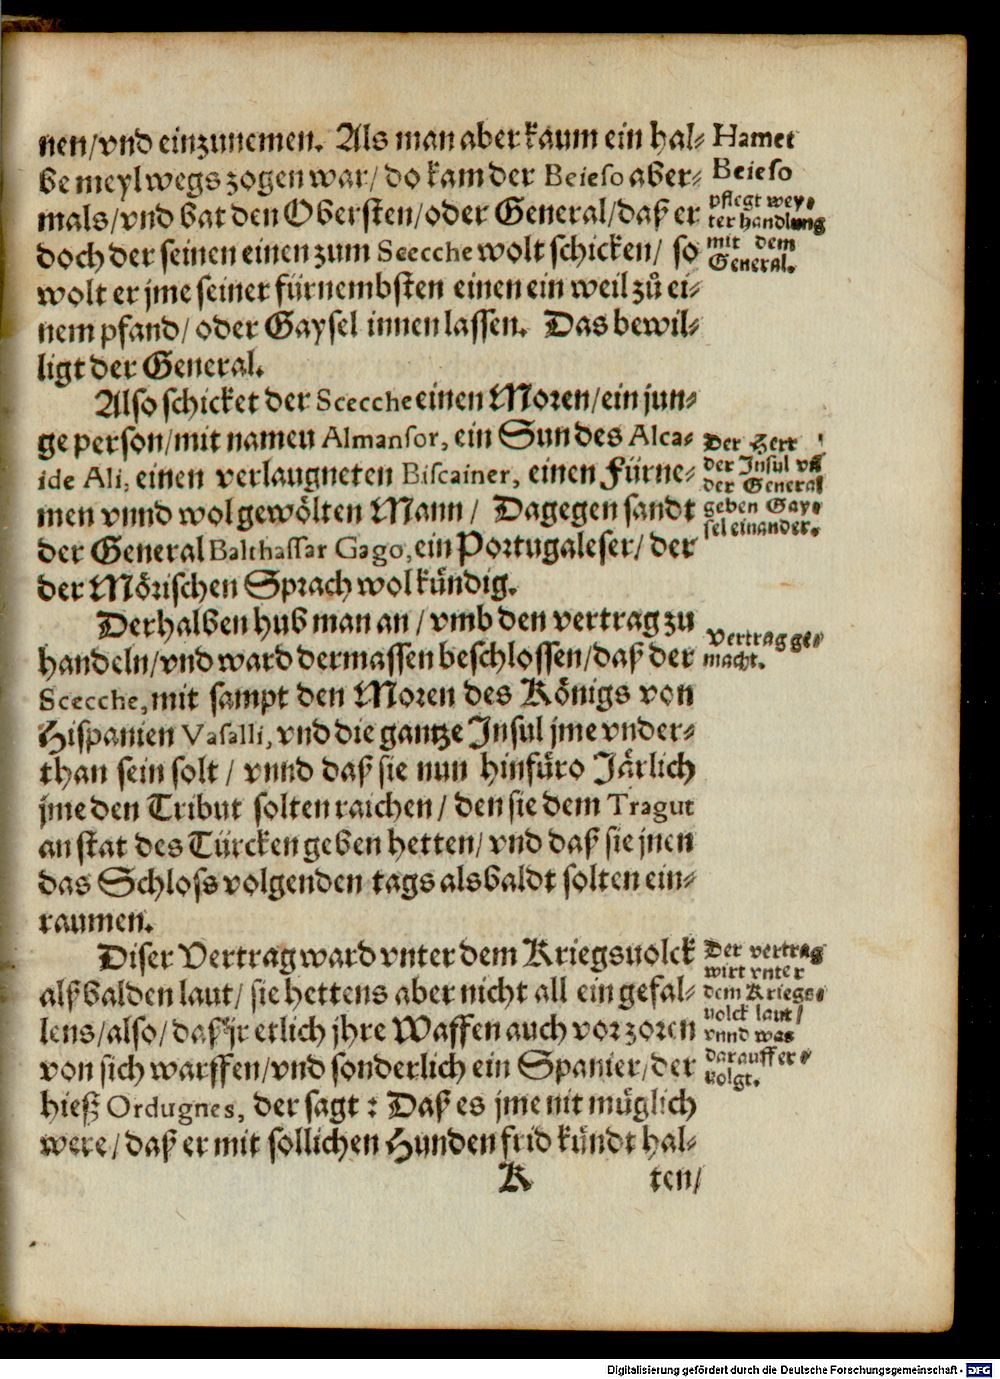 nen/vnd einzunemen. Als man aber kaum ein hal-
be meyl wegs zogen war/ do kam der Beieso aber-
mals/vnd bat den Obersten/oder General/daß er
doch der seinen einen zum Scecche wolt schicken/ so
wolt er jme seiner fürnembsten einen ein weil zů ei-
nem pfand/ oder Gaysel innen lassen. Das bewil-
ligt der General.
Also schicket der Scecche einen Moren/ein jun-
ge person/mit namen Almansor, ein Sun des Alca-
ide Ali, einen verlaugneten Biscainer, einen Fürne-
men vnnd wol gewölten Mann/ Dagegen sandt
der General Balthassar Gago, ein Portugaleser/ der
der Mörischen Sprach wol kündig.
Derhalben hub man an/vmb den vertrag zu
handeln/vnd ward dermassen beschlossen/daß der
Scecche, mit sampt den Moren des Königs von
Hispanien Vasalli, vnd die gantze Insul jme vnder-
than sein solt/ vnnd daß sie nun hinfüro Järlich
jme den Tribut solten raichen/ den sie dem Tragut
an stat des Türcken geben hetten/ vnd daß sie jnen
das Schloss volgenden tags alsbaldt solten ein-
raumen.
Diser Vertrag ward vnter dem Kriegsuolck
alßbalden laut/ sie hettens aber nicht all ein gefal-
lens/also/daß jr etlich jhre Waffen auch vor zoren
von sich warffen/vnd sonderlich ein Spanier/der
hieß Ordugnes, der sagt: Daß es jme nit müglich
were/daß er mit sollichen Hunden frid kündt hal-
K ten/
Hamet
Beieso
pflegt wey-
ter handlung
mit dem
General.
Der Herr
der Insul vñ
der General
geben Gay-
sel einander.
Vertrag ge-
macht.
Der vertrag
wirt vnter
dem Kriegs-
uolck laut/
vnnd was
darauff er-
uolgt.
Digitalisierung gefördert durch die Deutsche Forschungsgemeinschaft - DFG